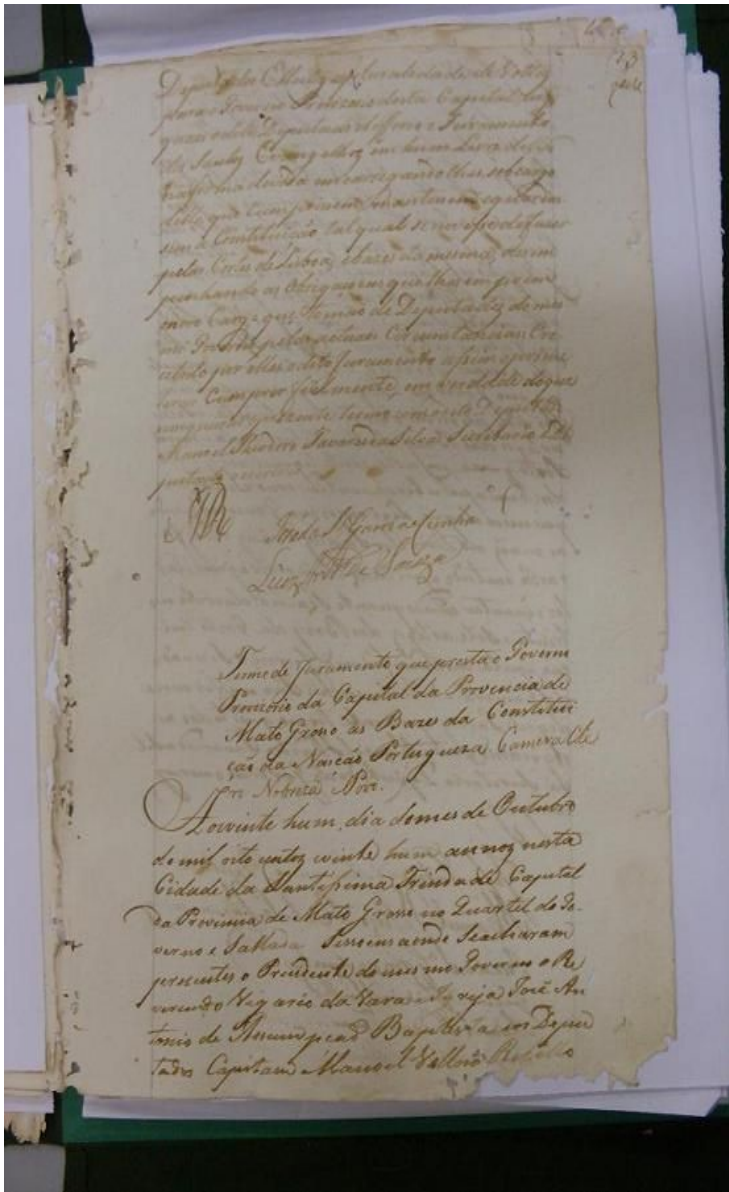 Deputados Eleitos apluralidade de Votos
para o Governo Provisorio desta Capital, aos
quaes odito Deputado
dos Santos Evangelhos em hum Livro delles
na forma devida emcarregandolhes sobcargo
delle que comprissem, mantivessem eguardas
sem a Constituição tal qual
pelas Cortes de Lisboa, ebazes da mesma, desem
penhando as Obrigaçoens que lhes empoem
onovo Cargo que tomão de Deputados do mes
mo Governo pelas actuaes Circunstancias
por elles odito Juramento assim oprome
terão Comprir fielmente, em verdade do que
o prezente termo
Manoel Theodoro Tavares da Silva Secretario De
putado
José da Cunha
Luiz de Souza
Termo de Juramento que presta o Governo
Provizorio da Capital da Provincia de
Mato Groso, as Bazes da Constitui
ção da Nação Portugueza Camera Cle
ro Nobreza Povo.
Aovinte hum, dia domes de Outubro
de mil oito centos evinte hum annos nesta
Cidade da Santissima Trindade Capital
da Provincia de Mato Groso no Quartel do Go-
verno e Salla aonde Seacharam
prezentes o Prezidente domesmo Governo o Re
verendo Vegario da Vara e Igreja José An
tonio de Assumpção Baptista eos Depu
tados Capitam Manoel Vellozo Rebello